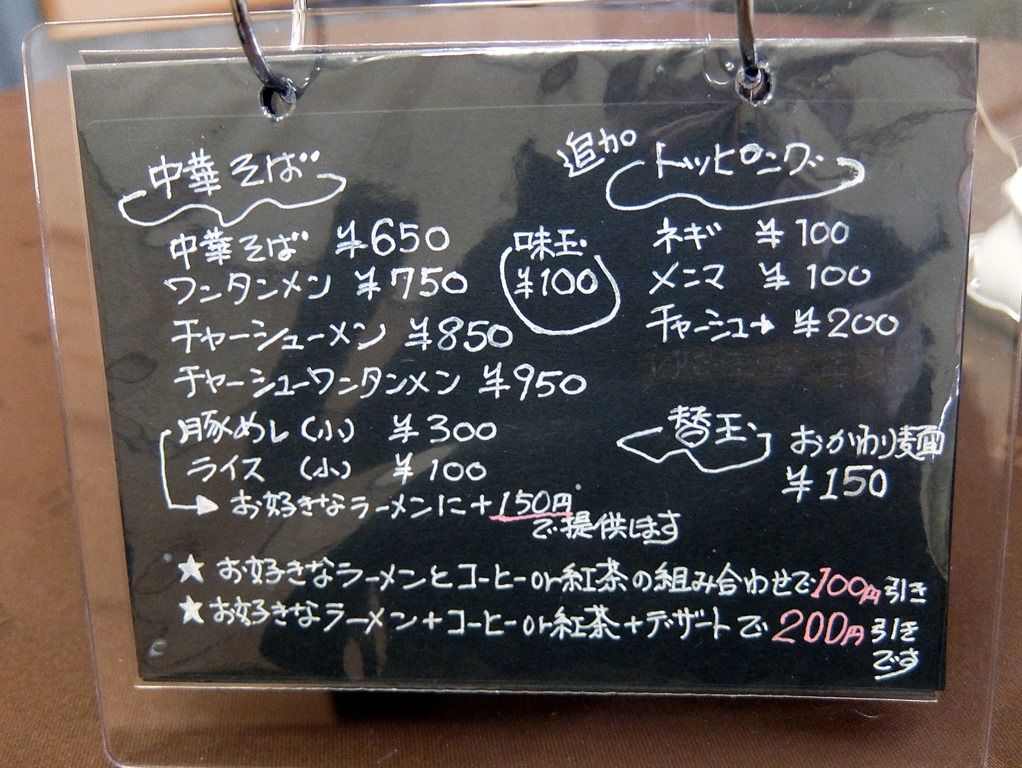 中華そば
中華そば ¥650
ワンタンメン ¥750
チャーシューメン ¥850
チャーシューワンタンメン ¥950
豚めし(小) ¥300
ライス (小) ¥100
お好きなラーメンに+150円
で提供します
味玉
¥100
追加 トッピング
ネギ ¥100
メンマ ¥100
チャーシュー ¥200
替玉
おかわり麺
¥150
★お好きなラーメンとコーヒーor紅茶の組み合わせで100円引き
★お好きなラーメン+コーヒーor紅茶+デザートで200円引き
です